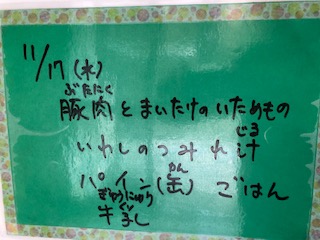 11/17(水)
ぶたにく
豚肉とまいたけのいためもの
じる
いわしのつみれ汁
かん
パイン(缶) ごはん
ぎゅうにゅう
牛乳